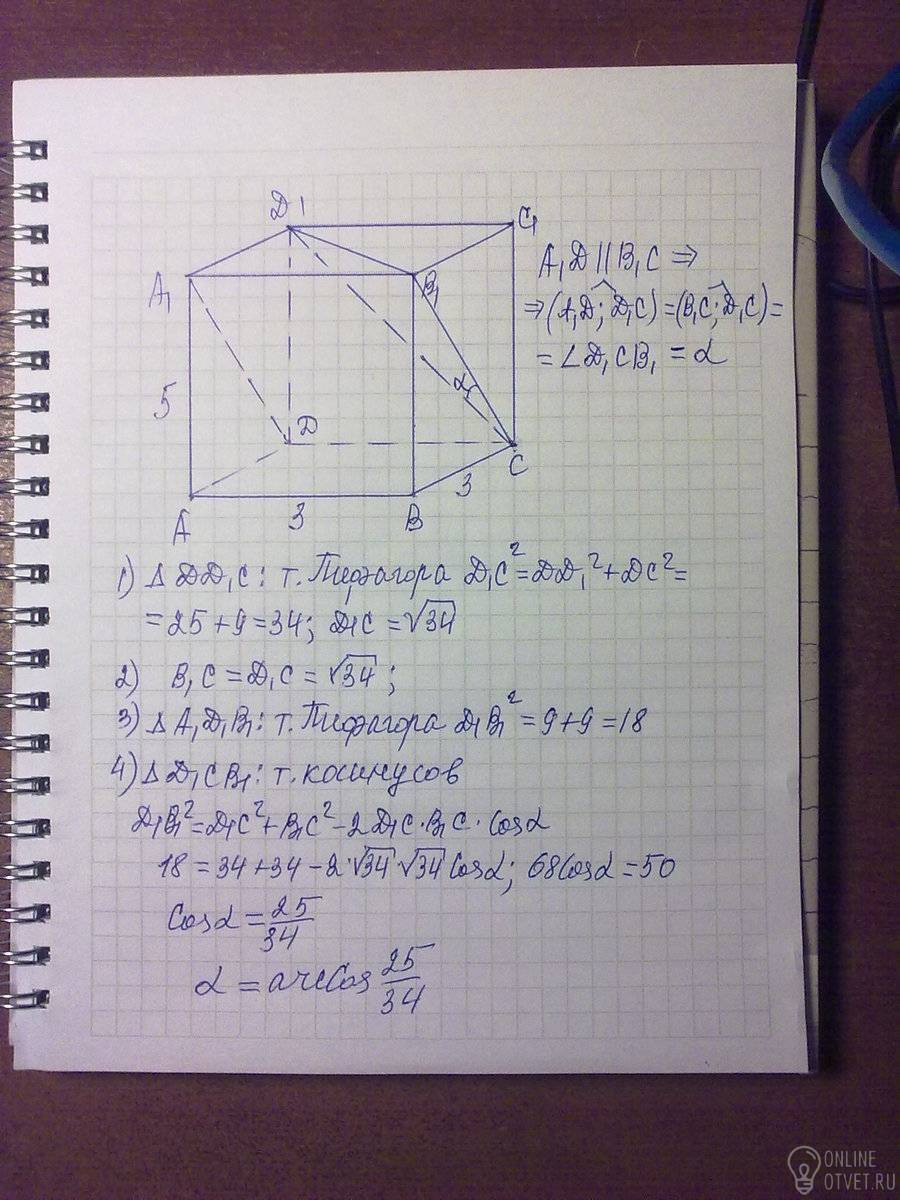 D1
C₁
A₁
B₁
5
α
D
C
3
A
3
B
A₁D || B₁C ⇒
⇒ (A₁D; D₁C) = (B₁C; D₁C) =
= ∠D₁CB₁ = α
1) Δ DD₁C: т. Пифагора D₁C² = DD₁² + DC² =
= 25 + 9 = 34; D₁C = √34
2) B₁C = D₁C = √34;
3) Δ A₁D₁B₁: т. Пифагора D₁B₁² = 9 + 9 = 18
4) Δ D₁CB₁: т. косинусов
D₁B₁² = D₁C² + B₁C² - 2 D₁C · B₁C · Cosα
18 = 34 + 34 - 2·√34·√34 Cosα; 68Cosα = 50
Cosα = 25/34
α = arcCos 25/34
ONLINE
OTVET.RU